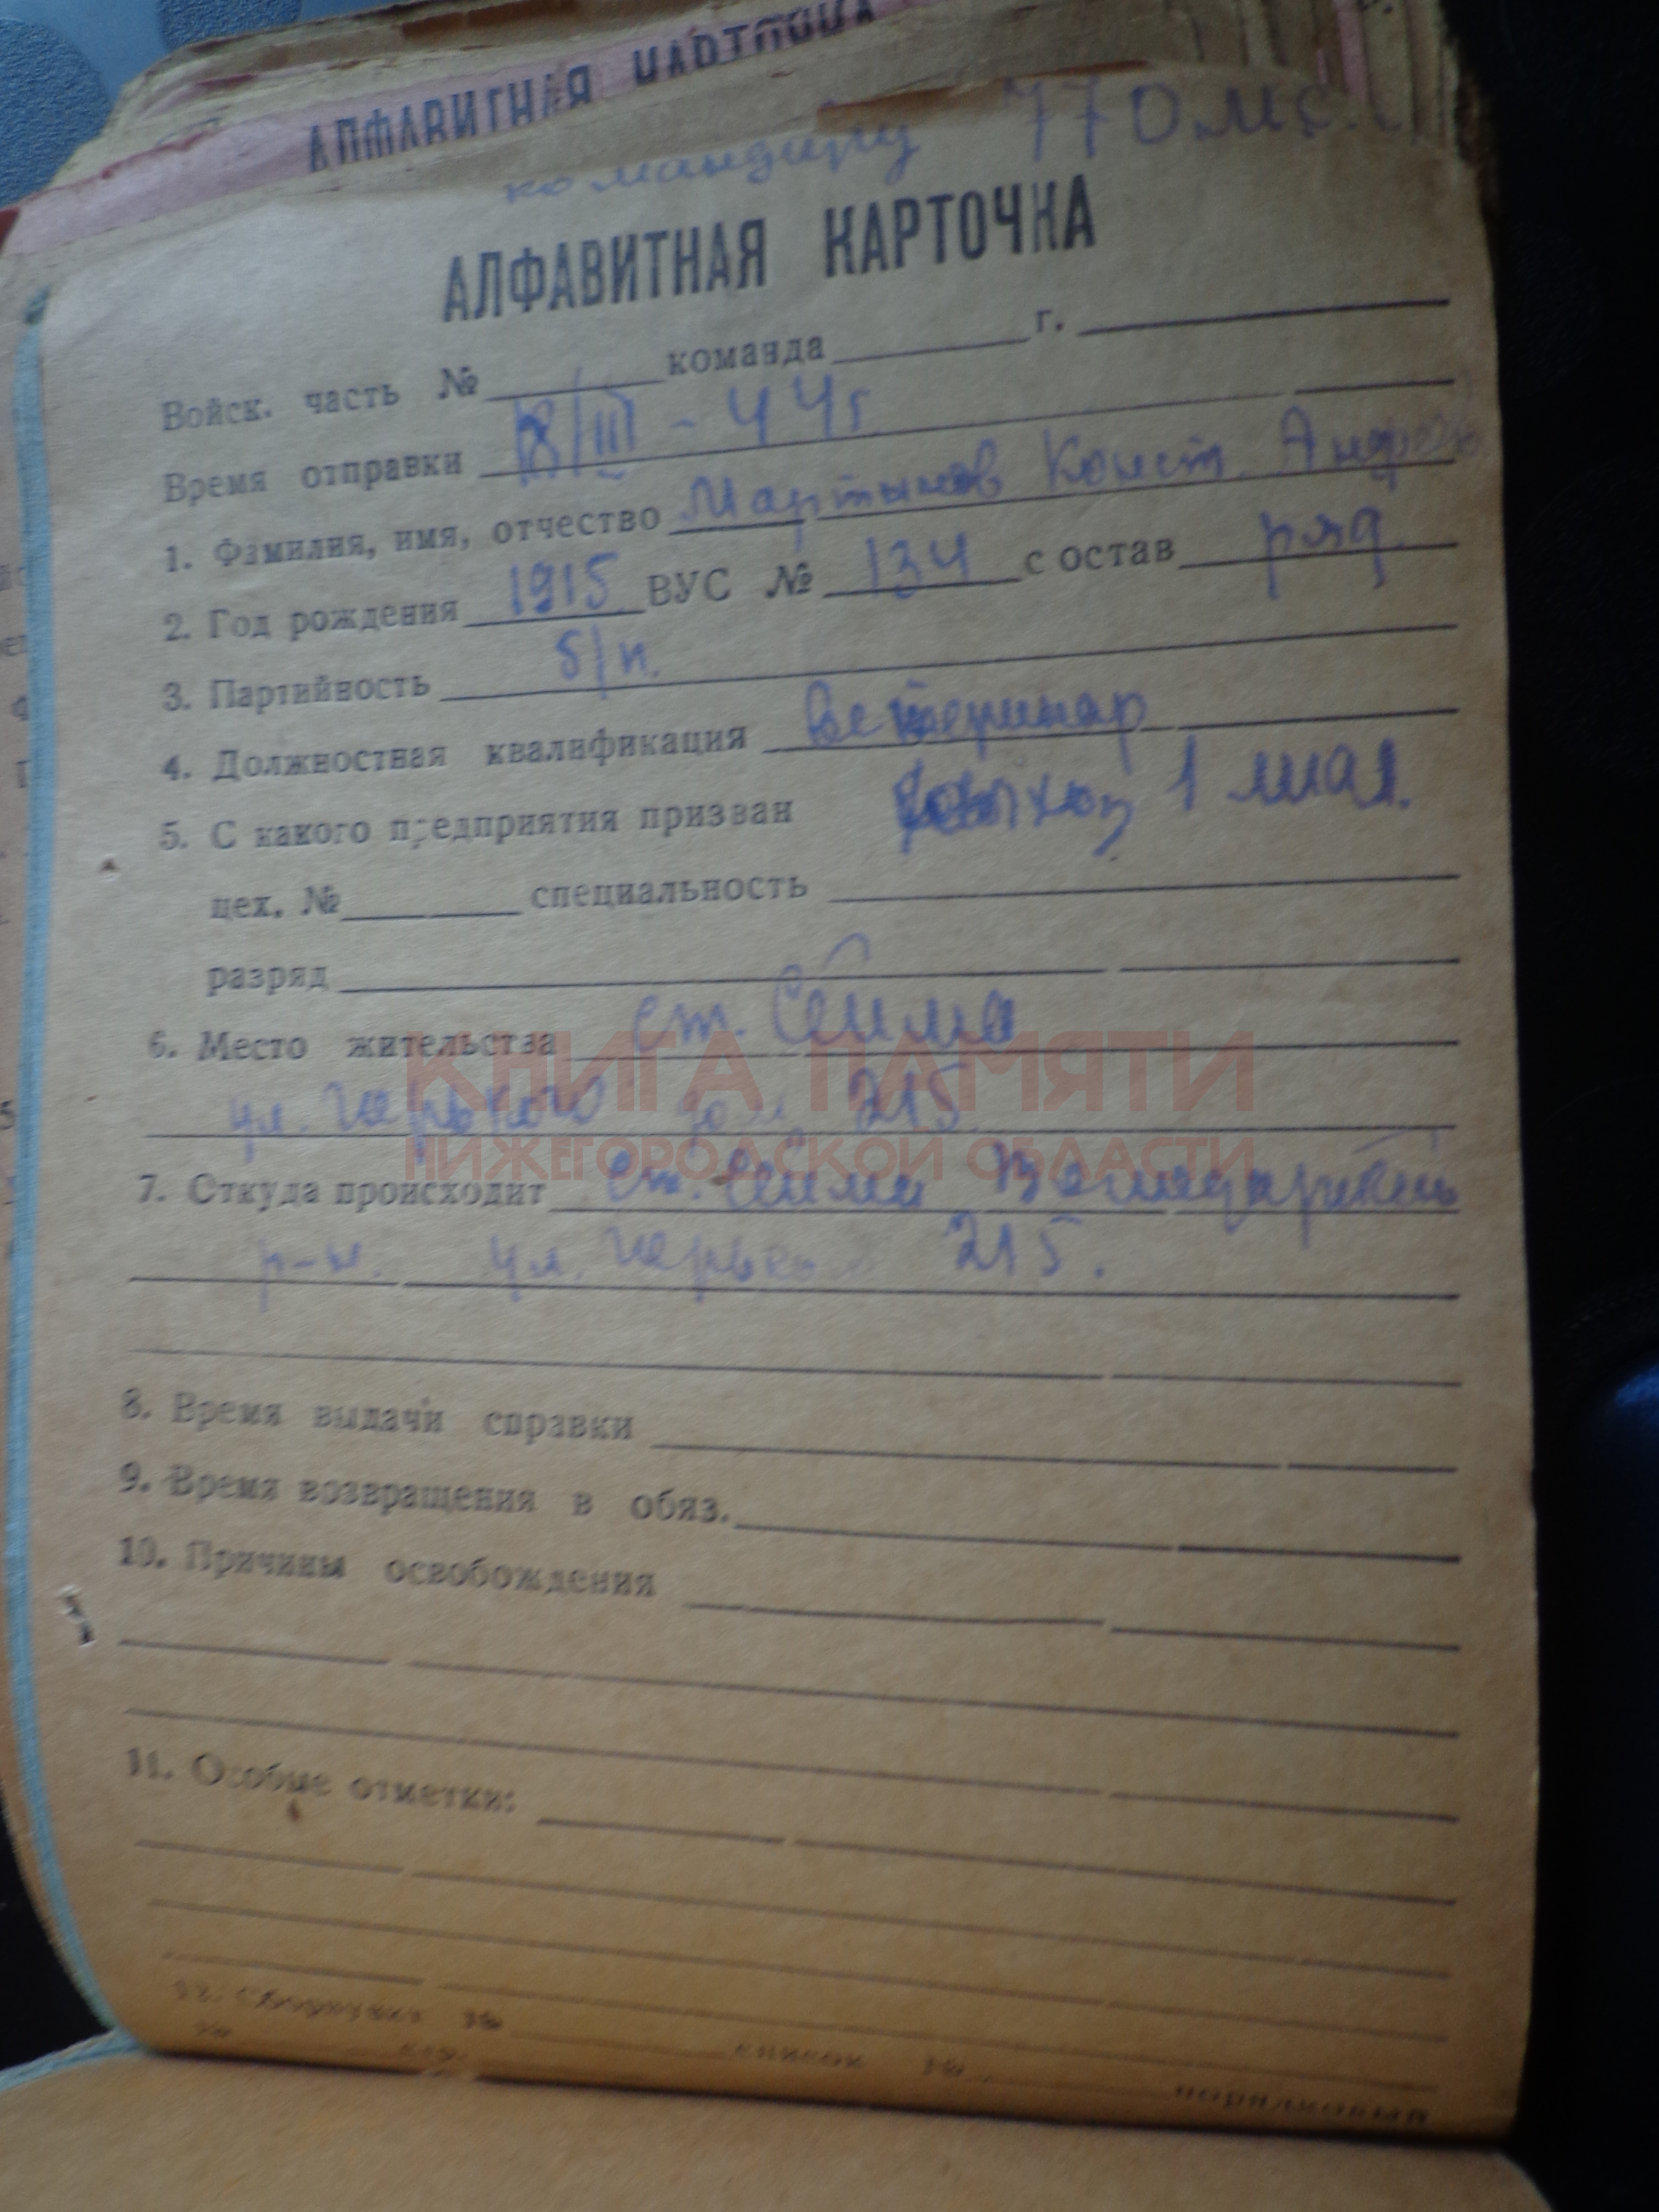 АЛФАВИТНАЯ КАРТОЧКА
командиру 770 мс
АЛФАВИТНАЯ КАРТОЧКА
Войск. часть № команда г.
Время отправки 18/III - 44 г
1. Фамилия, имя, отчество Мартынов Конст. Андреев
2. Год рождения 1915 ВУС № 134 состав ряд.
3. Партийность б/п.
4. Должностная квалификация ветеринар
5. С какого предприятия призван 1 мая.
цех. № специальность
разряд
6. Место жительства ст. Сейма
КНИГА ПАМЯТИ
ул. Горького дом 215.
НИЖЕГОРОДСКОЙ ОБЛАСТИ
7. Откуда происходит ст. Сейма Володарский
р-н. ул. Горько 215.
8. Время выдачи справки
9. Время возвращения в обяз.
10. Причины освобождения
11. Особые отметки:
№ список №
порядковый